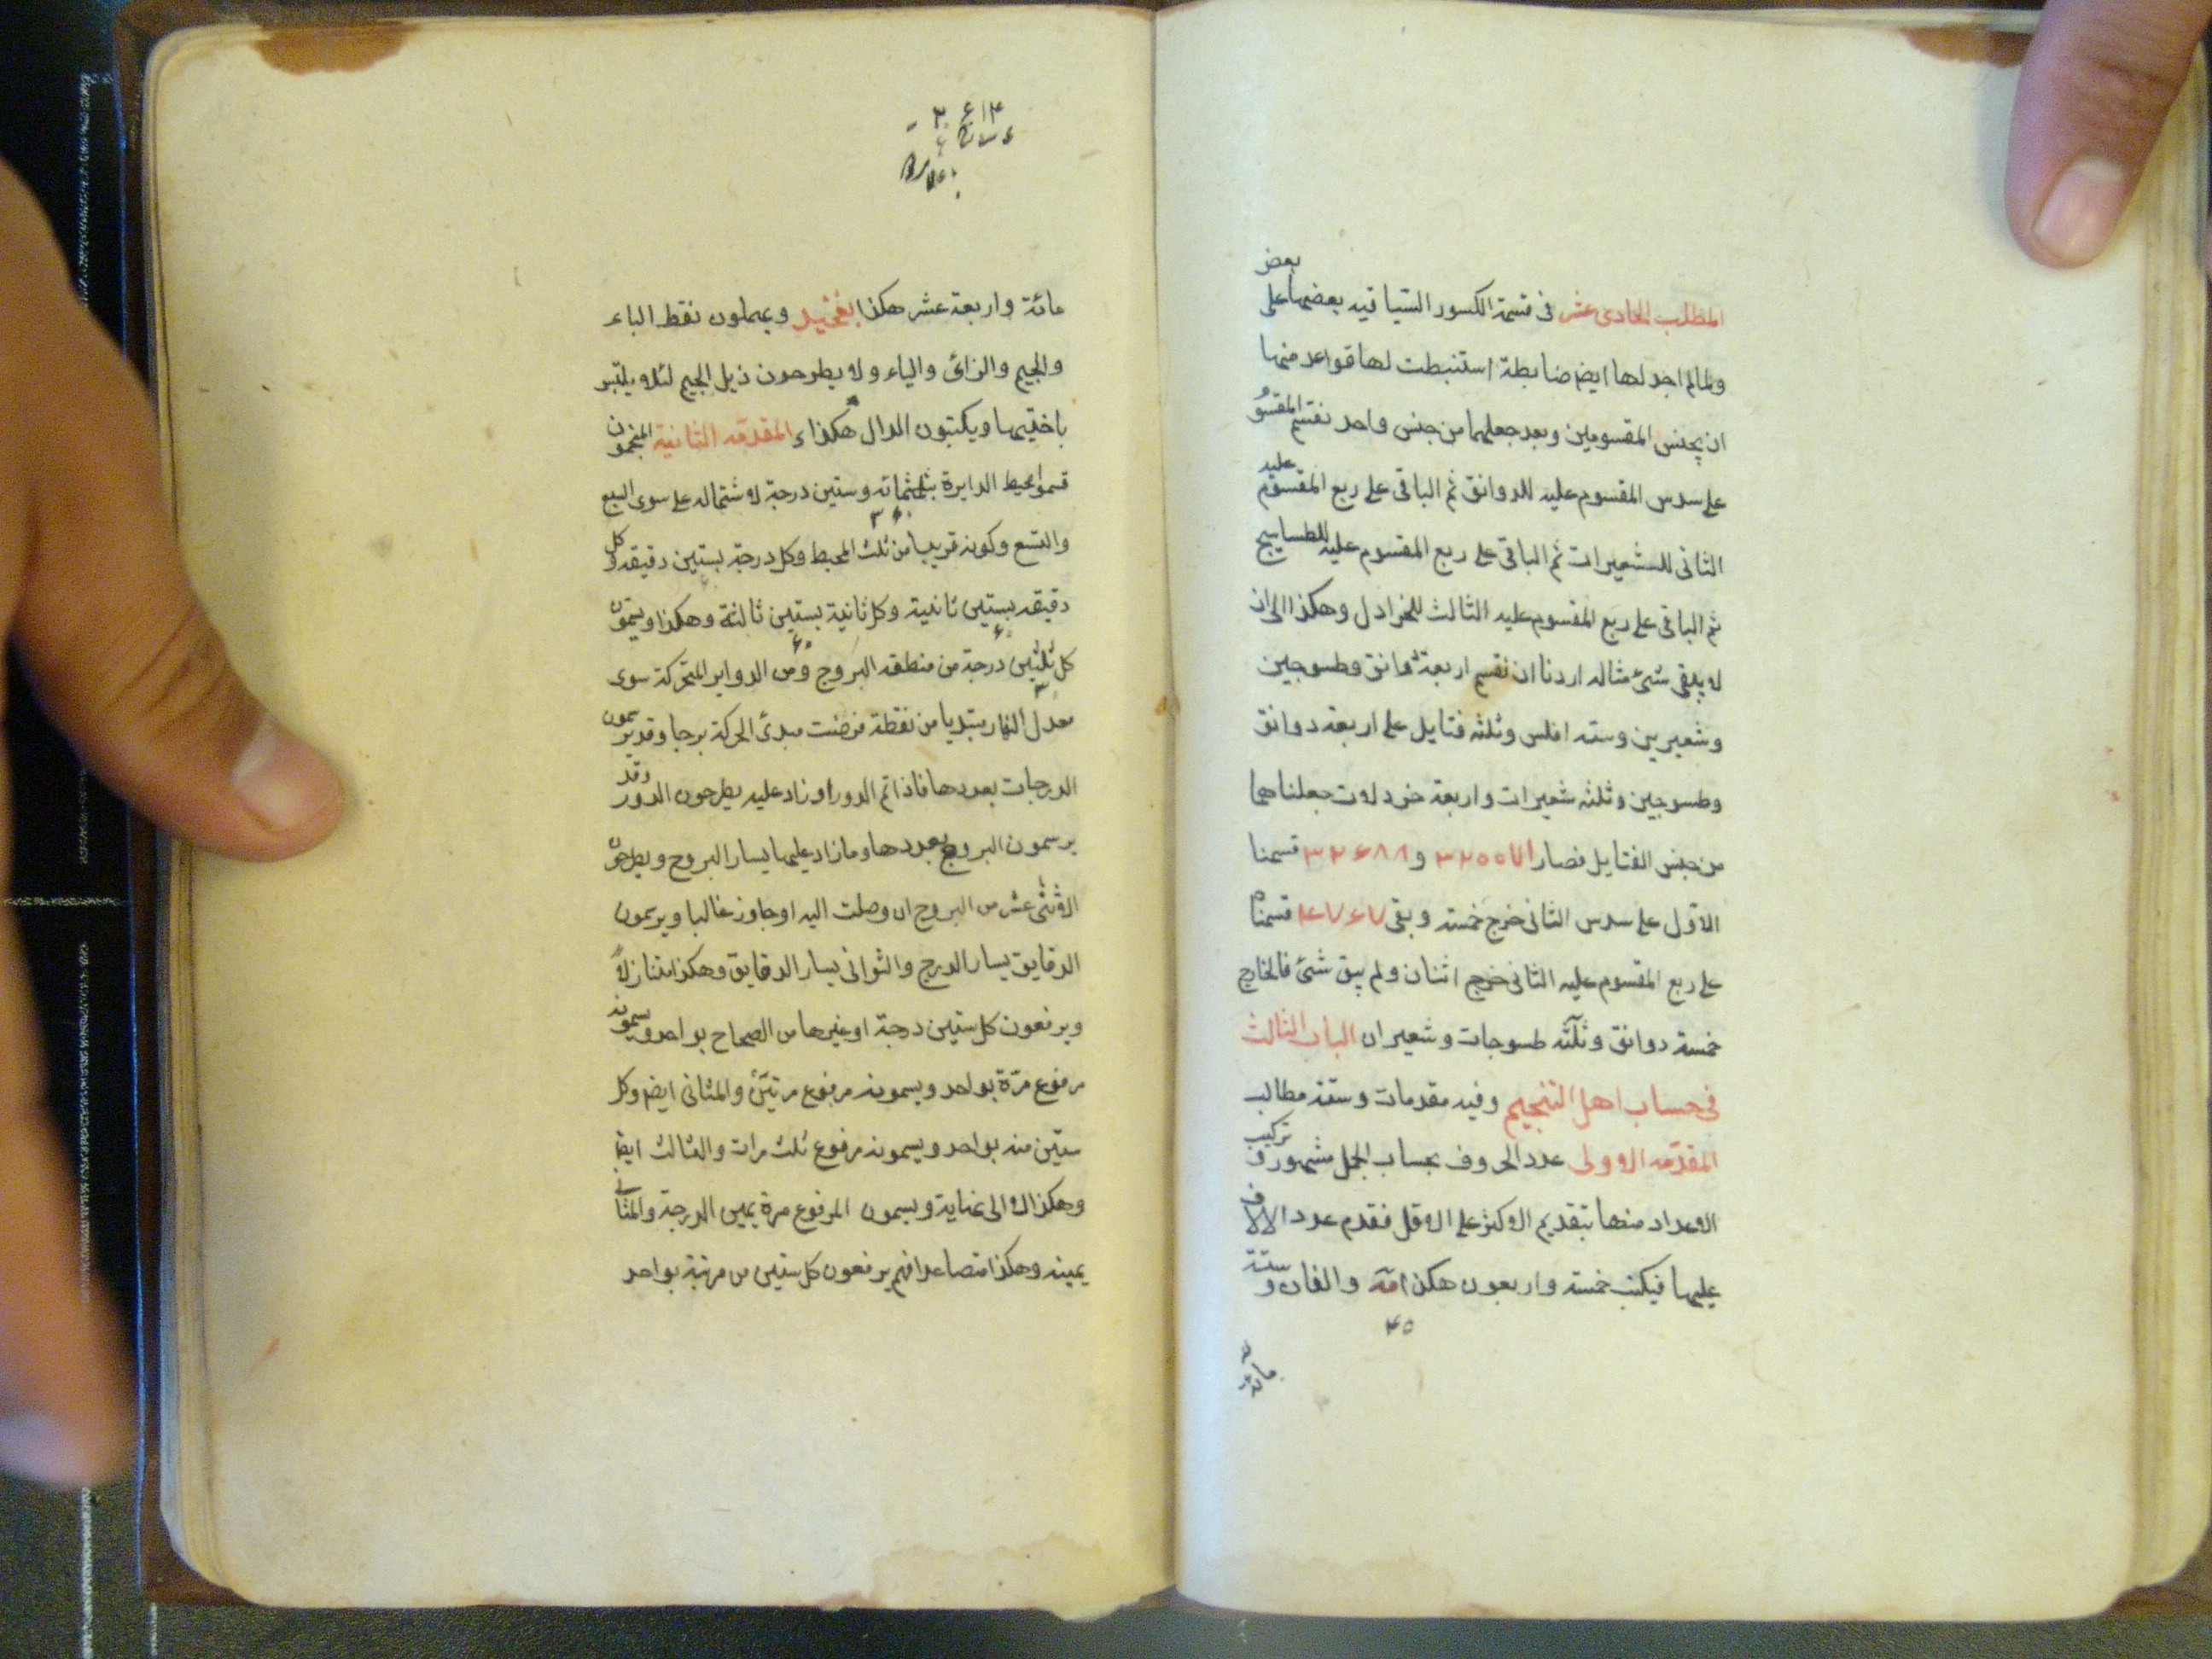 المطلب الحادى عشر فى قسمة الكسور السياقيه بعضها على بعض
ولما لم اجد لها ايضم ضابطة استنبطت لها قواعد منها
ان يجنس المقسومين وبعد جعلهما من جنس واحد نقسم المقسوم
على سدس المقسوم عليه للدوانق ثم الباقى على ربع المقسوم عليه
الثانى للشعيرات ثم الباقى على ربع المقسوم عليه للطساسيج
ثم الباقى على ربع المقسوم عليه الثالث للخرادل وهكذا الى ان
لا يبقى شئ مثاله اردنا ان نقسم اربعة دوانق وطسوجين
وشعيرين وسته افلس وثلثه فتايل على اربعة دوانق
وطسوجين وثلثه شعيرات واربعة خردلات جعلناهما
من جنس الفتايل فصار ا و ٣٢٦٨٨ قسمنا
الاول على سدس الثانى خرج خمسة وبقى قسمناه
على ربع المقسوم عليه الثانى خرج اثنان ولم يبق شئ فالخارج
خمسة دوانق وثلثه طسوجات وشعيران الباب الثالث
فى حساب اهل التنجيم وفيه مقدمات وستة مطالب
المقدمه الاولى عدد الحروف بحساب الجمل مشهور و تركيب
الاعداد منها بتقديم الاكثر على الاقل فقدم عدد الالاف
عليها فيكتب خمسة واربعون هكذا مه والفان و ستة
٤٥
مائة
مائة واربعة عشر هكذا ويهملون نقط الباء
والجيم والزائ والياء ولا يطرحون ذيل الجيم لئلا يلتبس
باختيها ويكتبون الدال هكذا المقدمه الثانية المنجمون
قسموا محيط الدايرة بثلثمائه وستين درجة لاشتماله على سوى السبع
٣٦٠
والتسع وكونه قريبا من ثلث المحيط وكل درجة بستين دقيقه و كل
دقيقه بستين ثانية وكل ثانية بستين ثالثة وهكذا ويسمون
كل ثلثين درجة من منطقه البروج ومن الدواير المتحركة سوى
معدل النهار مبتديا من نقطة فرضت مبدئ الحركة برجا وقد يرسمون
الدرجات بعددها فاذا تم الدور او زاد عليه يطرحون الدور وقد
يرسمون البروج بعددها وما زاد عليها يسار البروج ويطرحون
الاثنى عشر من البروج ان وصلت اليه او جاوز غالبا ويرسمون
الدقايق يسار الدرج والثوانى يسار الدقايق وهكذا متنازلا
ويرفعون كل ستين درجة او غيرها من الصحاح بواحد ويسمونه
مرفوع مرة بواحد ويسمونه مرفوع مرتين والمثانى ايضم وكل
ستين منه بواحد ويسمونه مرفوع ثلث مرات والثالث ايضا
وهكذا الى غاية ويسمون المرفوع مرة يمين الدرجة والمثانى
يمينه وهكذا متصاعدا فهم يرفعون كل ستين من مرتبة بواحد